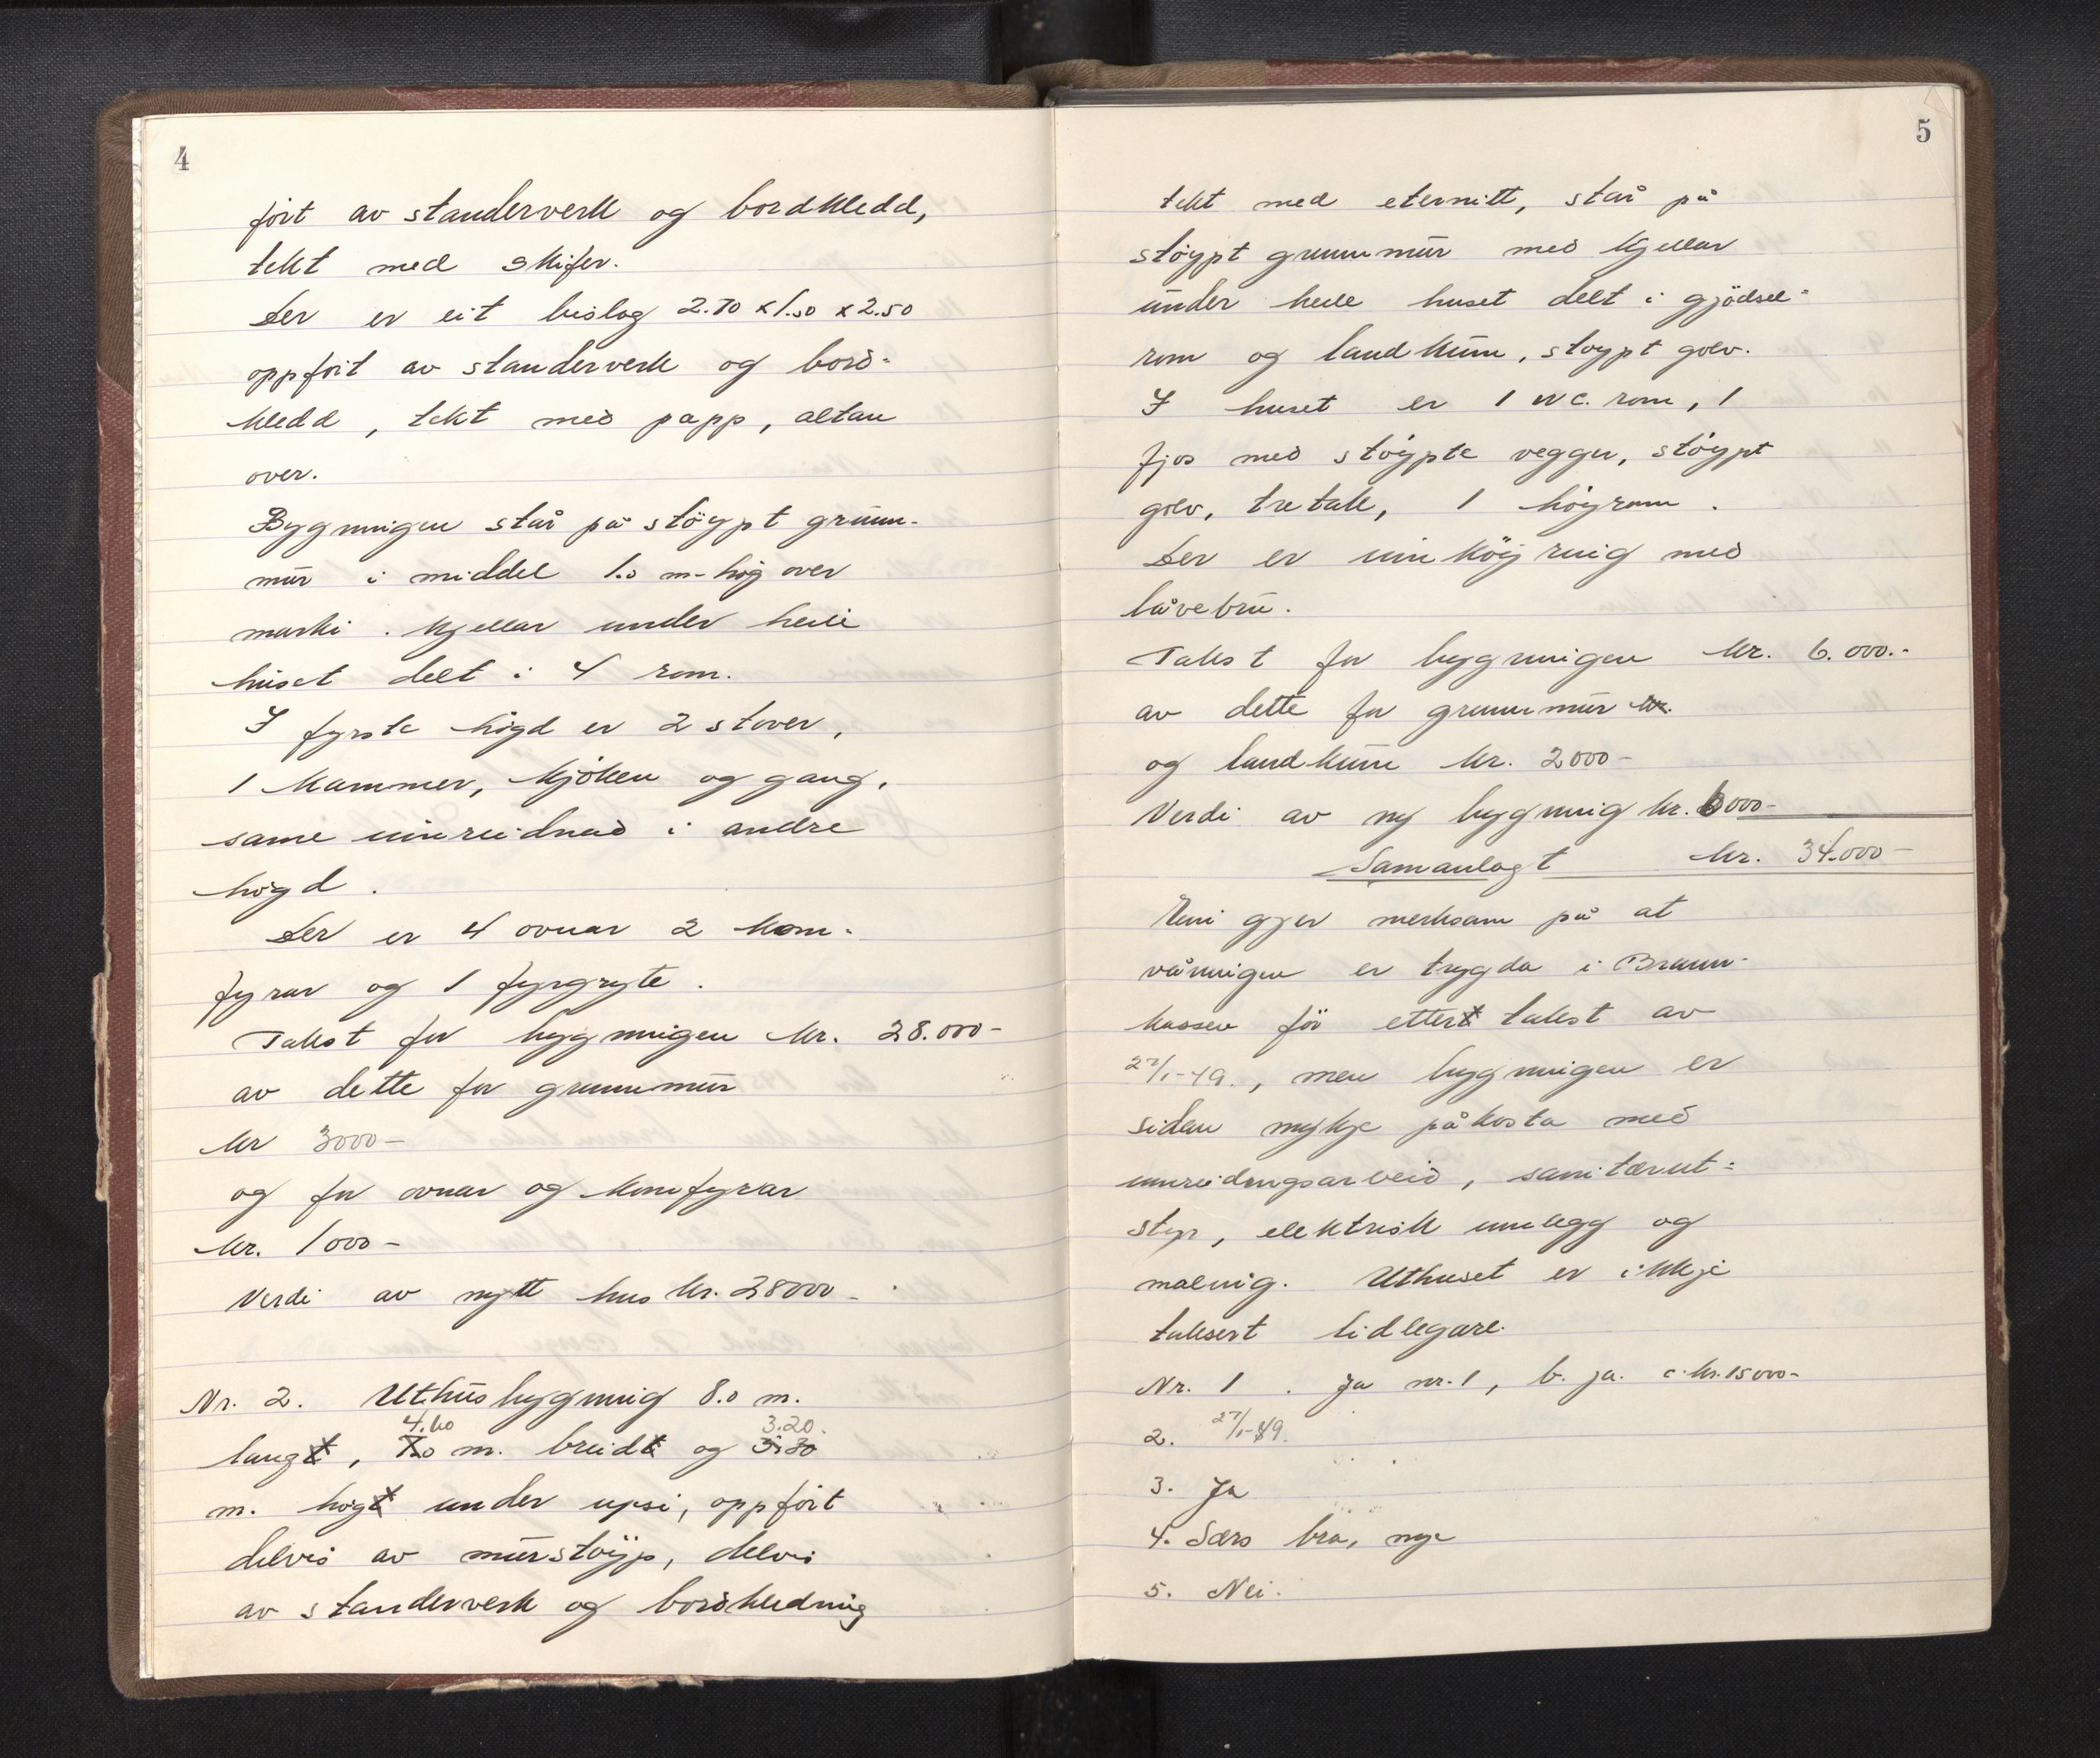 4
fört av standerverk og bordkledd,
tekt med skifer.
Der er eit bislag 2.70 x 1.50 x 2.50
oppfört av standerverk og bord-
kledd, tekt med papp, altan
over.
Bygningen står på stöypt grunn-
mur i middel 1.0 m. höy over
marki. Kjellar under heile
huset delt i 4 rom.
I fyrste högd er 2 stover,
1 kammer, kjöken og gang,
same innreidnad i andre
högd.
Der er 4 ovnar 2 kom-
fyrar og 1 fyrgryte.
Takst for bygningen kr. 28.000-
av dette for grunnmur
kr 3000-
og for ovnar og komfyrar
kr. 1000-
Verdi av nytt hus kr. 28000-
Nr. 2. Uthusbygning 8.0 m.
4.60 3.20
langt, 7.0 m. breidt og 3.30
m. högt under upsi, oppfört
delvis av murstöyp, delvis
av standerverk og bordkledning
5
tekt med eternitt, står på
stöypt grunnmur med kjellar
under heile huset delt i gjödsel-
rom og landkum, stöypt golv.
I huset er 1 wc. rom, 1
fjos med stöypte vegger, stöypt
golv, tretak, 1 höyrom.
Der er innköyring med
låvebru.
Takst for bygningen kr. 6.000.-
av dette for grunnmur kr.
og landkum kr. 2000-
Verdi av ny bygning kr. 6000-
Samanlagt kr. 34.000-
gjer merksam på at
våningen er trygda i Brann-
kassen för etter takst av
27/1-49., men bygningen er
sidan mykje påkosta med
innreidingsarbeid, sanitærut-
styr, elektrisk innlegg og
maling. Uthuset er ikkje
taksert tidlegare.
Nr. 1. Ja nr. 1, b. ja. c. kr. 15000-
2. 27/1-49.
3. Ja
4. Særs bra, nye
5. Nei.